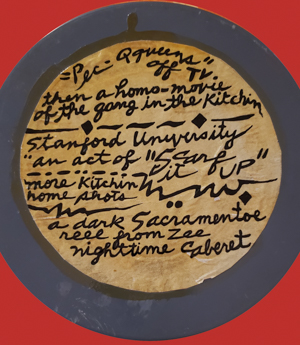 "Pec-Qqueens"
off TV.
then a homo-movie
of the gang in the Kitchin
Stanford Unversity
"an act of "Scarf
it UP"
more Kitchin
home shots
a dark Sacramentoe
reel from Zee
nighttime Caberet